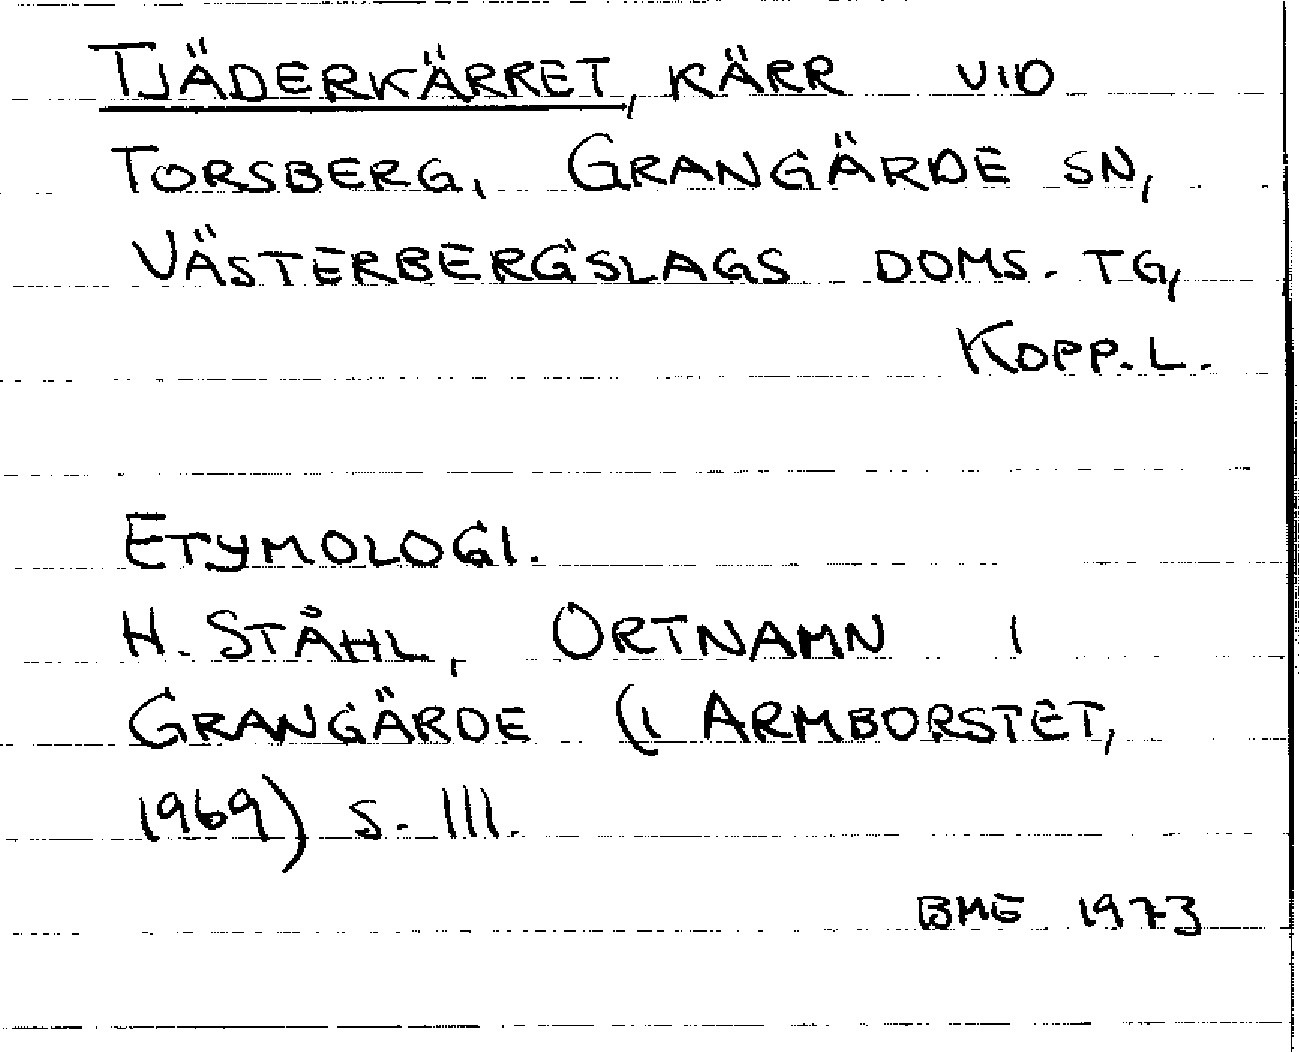 TJÄDERKÄRRET, KÄRR VID
TORSBERG, GRANGÄRDE SN,
VÄSTERBERGSLAGS DOMS. TG,
KOPP. L.
ETYMOLOGI.
H. STÅHL, ORTNAMN I
GRANGÄRDE (I ARMBORSTET,
1969) S. 111.
BME 1973